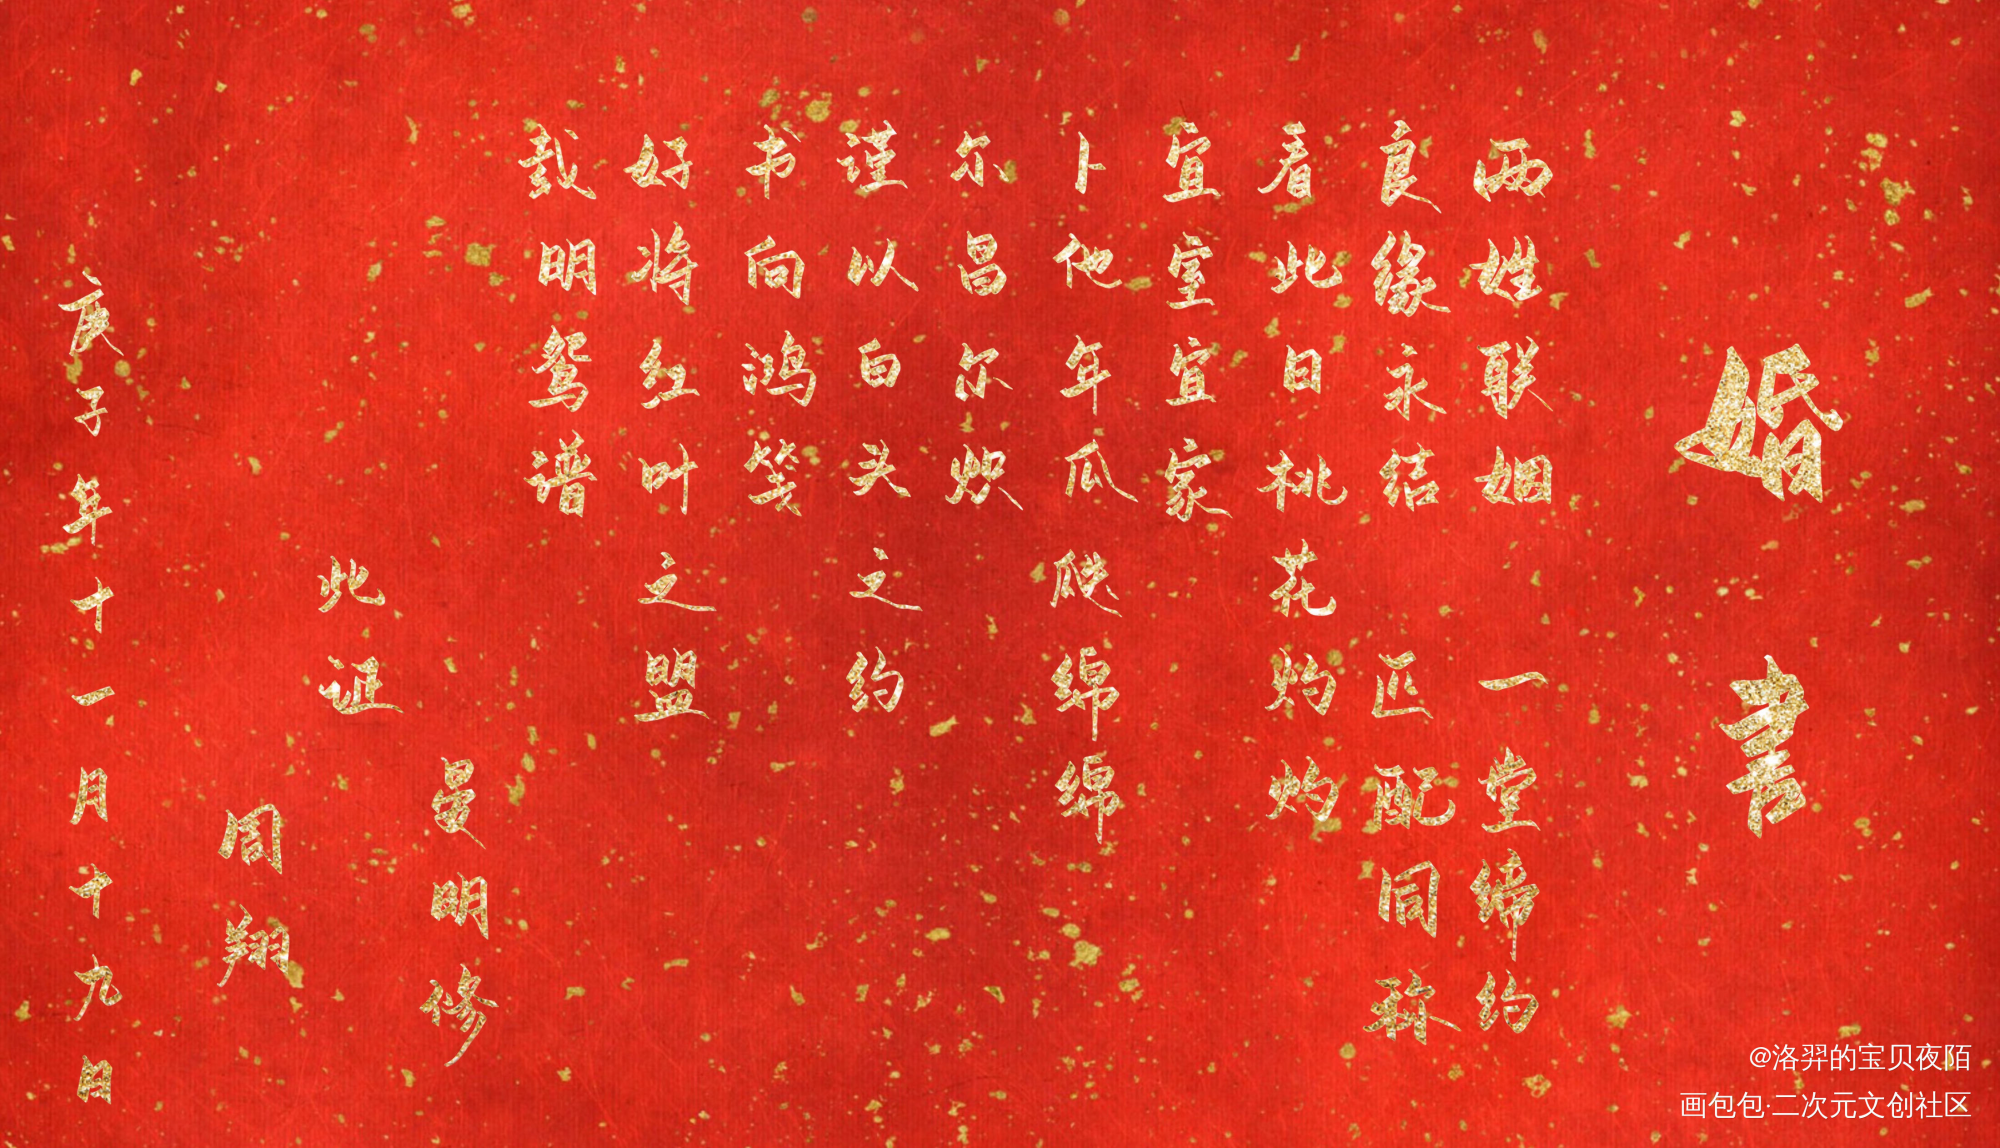 婚書
两姓联姻 一堂缔约
良缘永结 匹配同称
看此日桃花灼灼
宜室宜家
卜他年瓜瓞绵绵
尔昌尔炽
谨以白头之约
书向鸿笺
好将红叶之盟
载明鸳谱
晏明修
此证
同翔
庚子年十一月十九日
@洛羿的宝贝夜陌
画包包·二次元文创社区